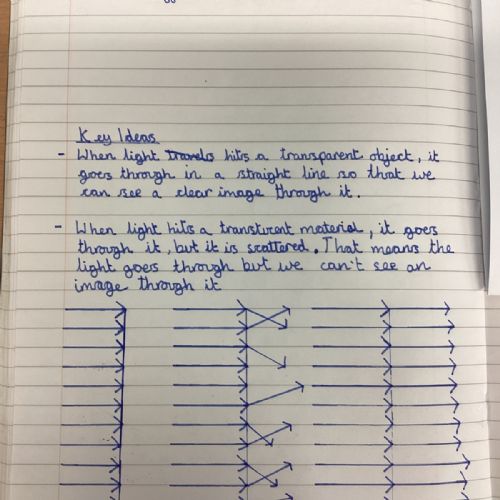 Key Ideas
- When light travels hits a transparent object, it
goes through in a straight line so that we
can see a clear image through it.
- When light hits a translucent material, it goes
through it, but it is scattered. That means the
light goes through but we can't see an
image through it